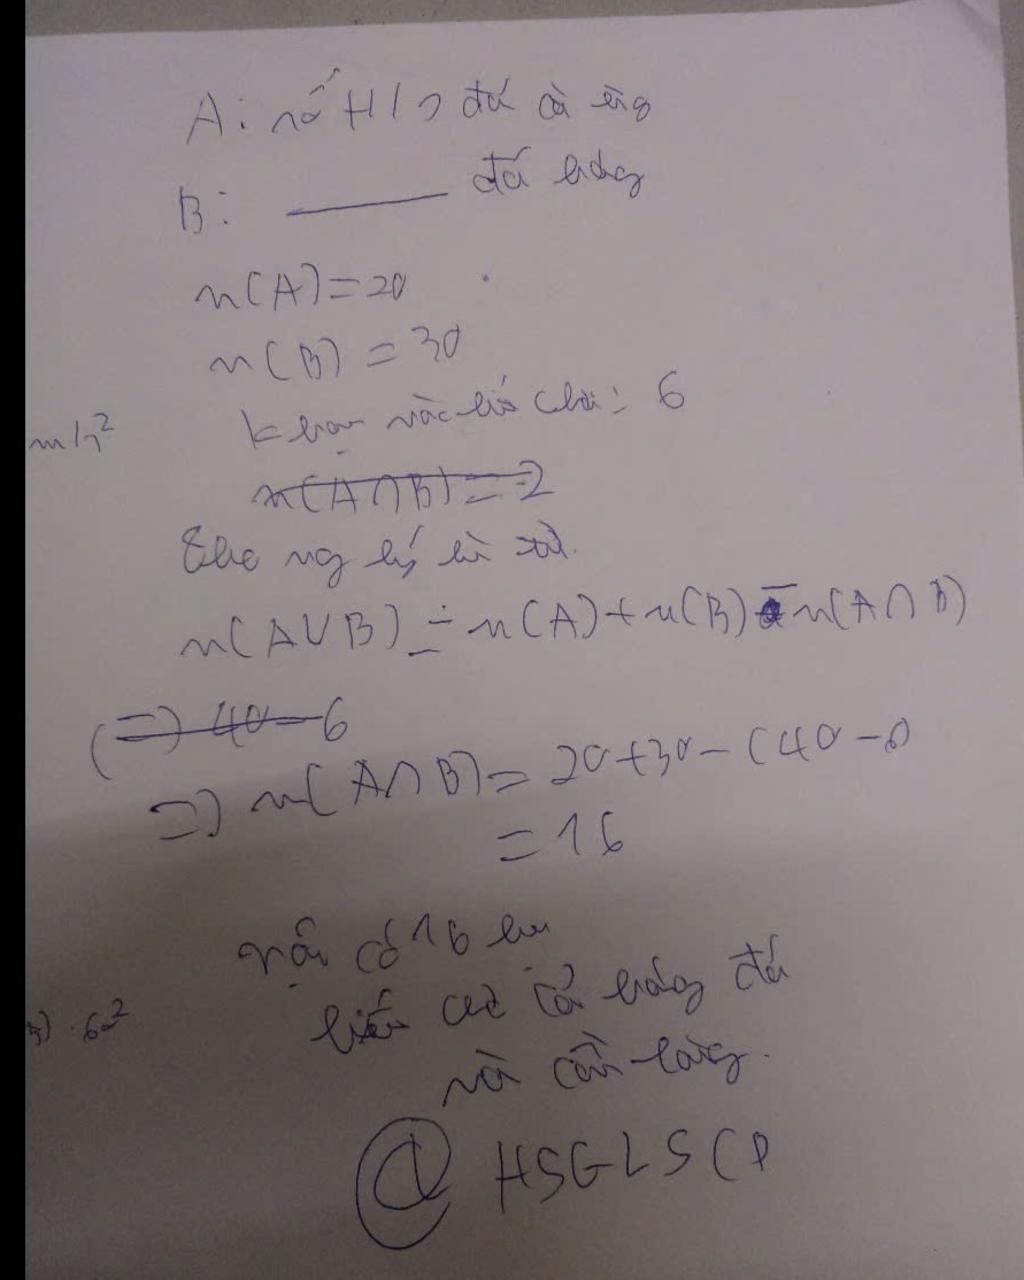 A: số H/s đá cầ
B: ——— đá bóng
n(A) = 20
n(B) = 30
K bạn nào chơi: 6
m/s²
n(A∩B) = 2
Theo ng lý bù trừ.
n(A∪B) = n(A) + n(B) - n(A∩B)
(=) 40-6
=) n(A∩B) = 20+30-(40-6)
= 16
vậy có 16 bạn
biết cả bóng đá
và cầu lông.
@ HSGLSCP